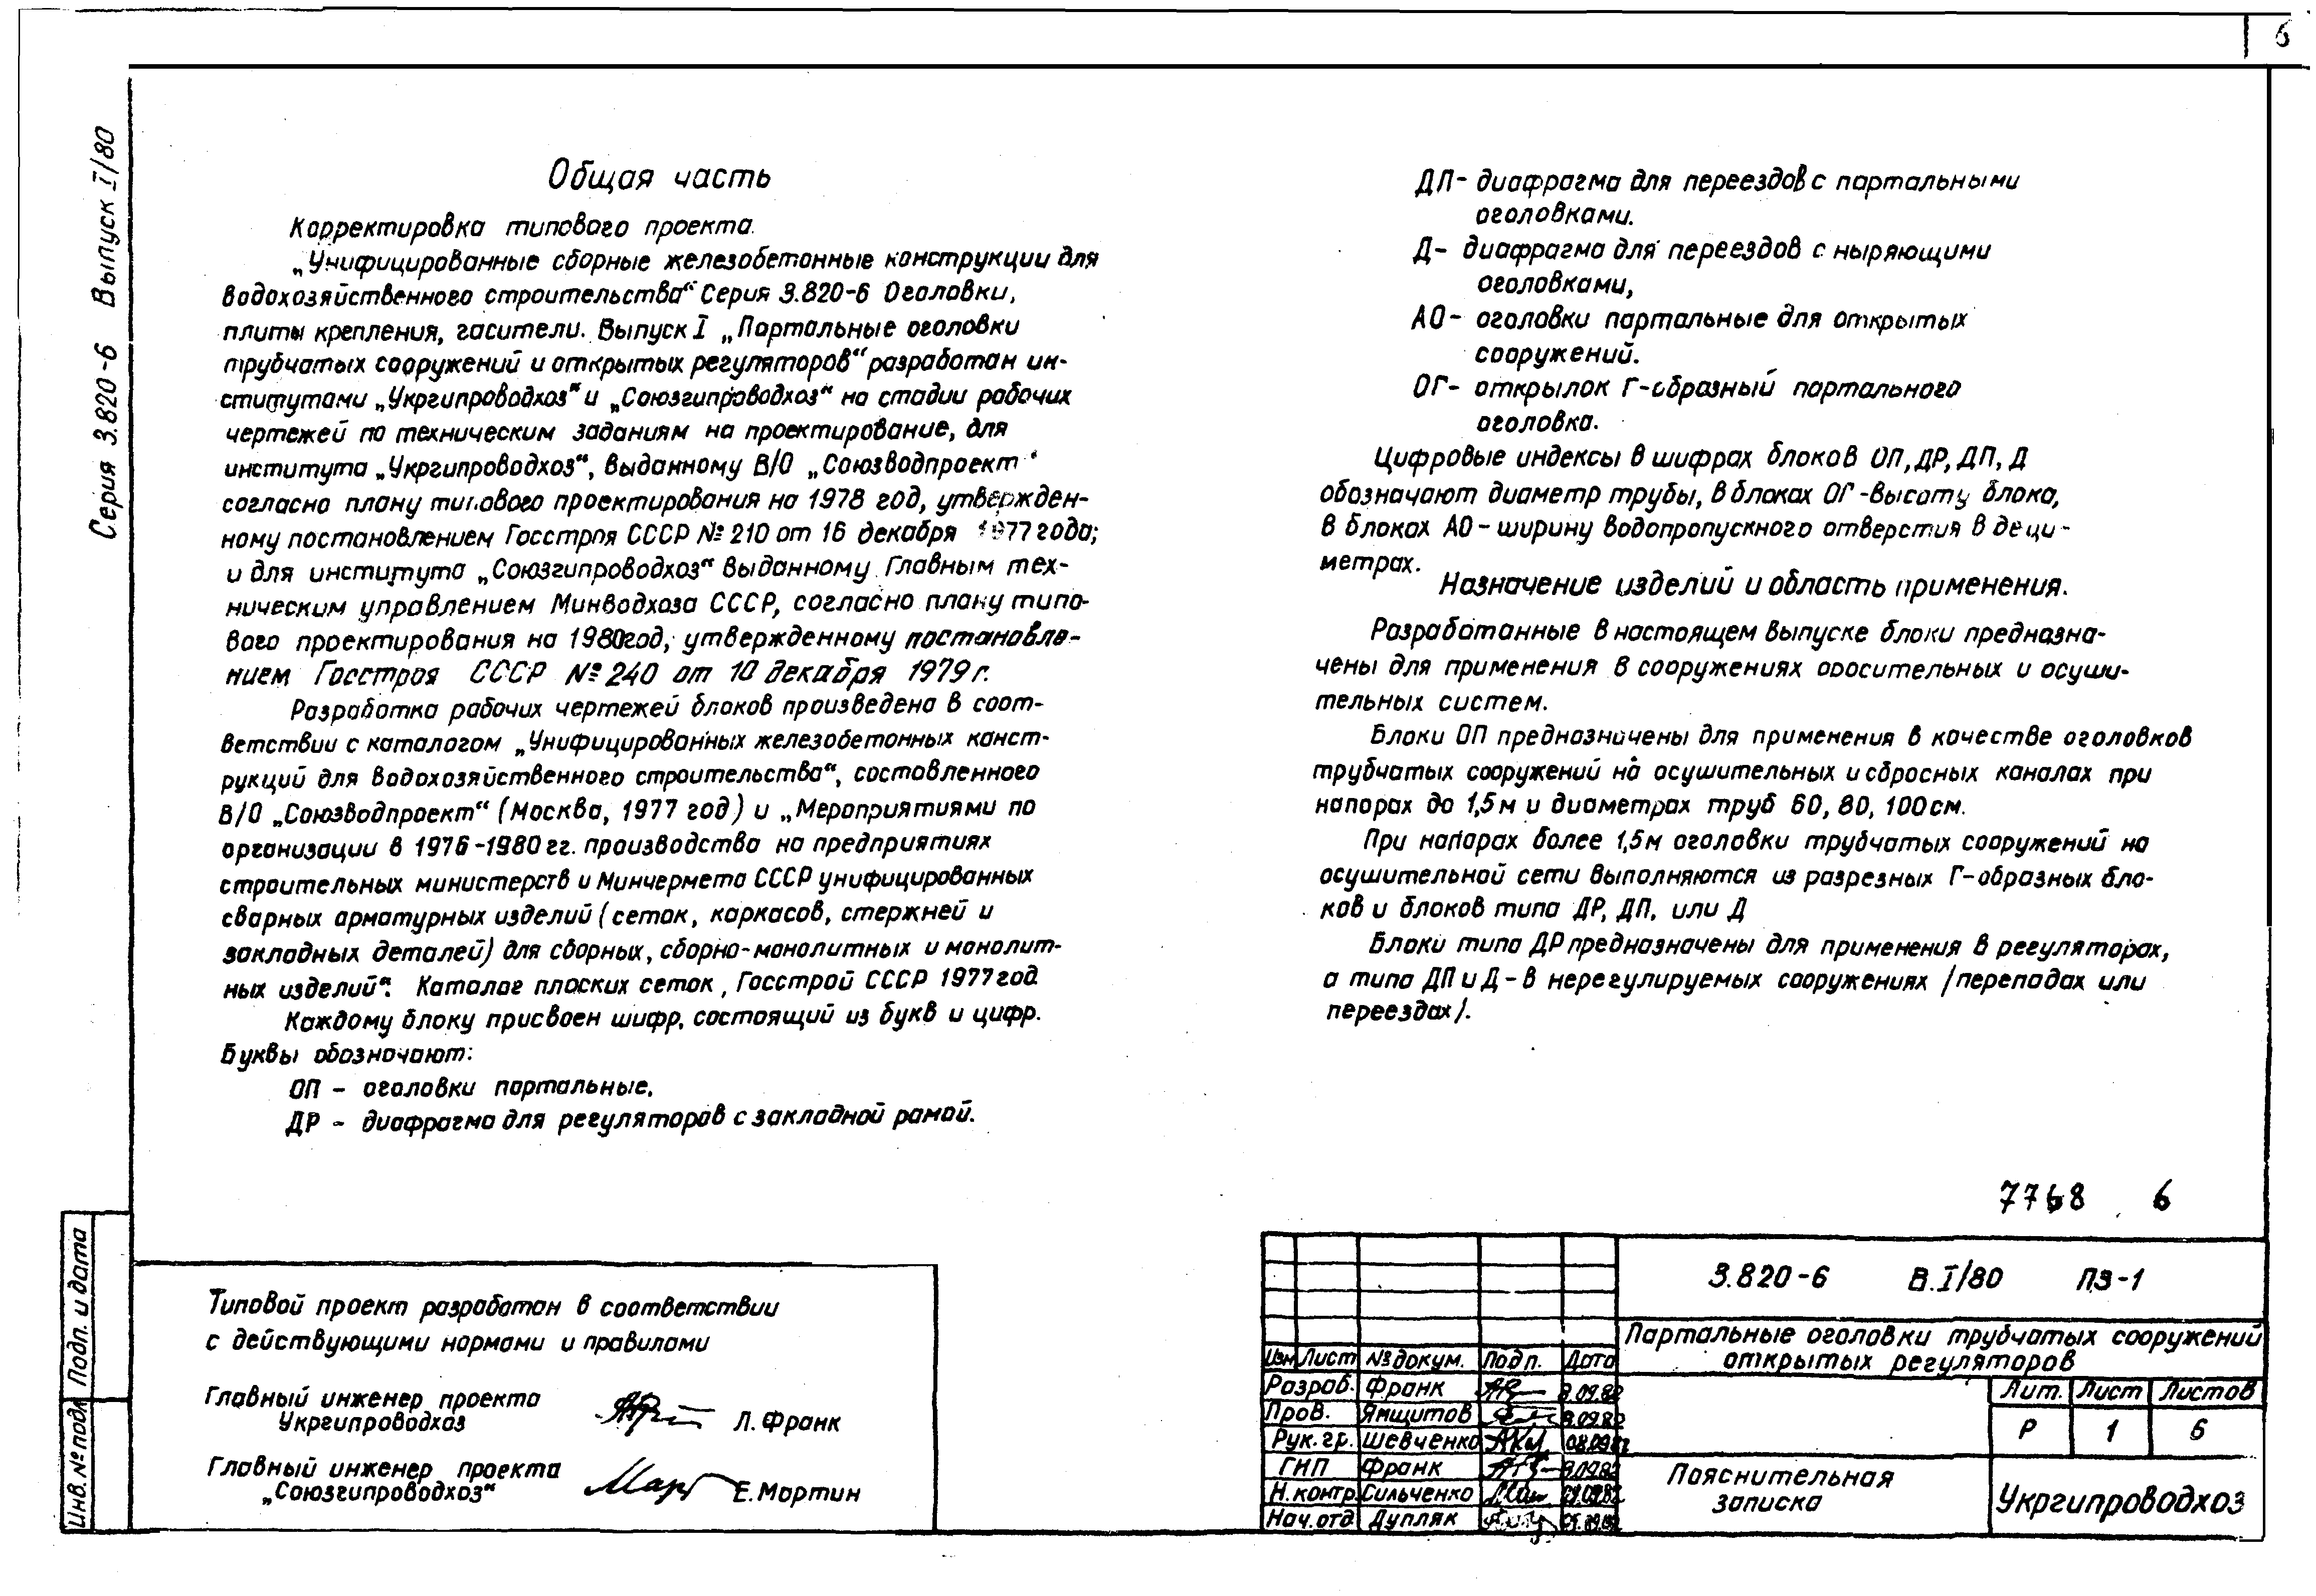 6
Серия 3.820-6 Выпуск I/80
Общая часть
Корректировка типового проекта.
„Унифицированные сборные железобетонные конструкции для
водохозяйственного строительства“ Серия 3.820-6 Оголовки,
плиты крепления, гасители. Выпуск I „Портальные оголовки
трубчатых сооружений и открытых регуляторов“ разработан ин-
ститутами „Укргипроводхоз“ и „Союзгипроводхоз“ на стадии рабочих
чертежей по техническим заданиям на проектирование, для
института „Укргипроводхоз“, выданному В/О „Союзводпроект“
согласно плану типового проектирования на 1978 год, утвержден-
ному постановлением Госстроя СССР № 210 от 16 декабря 1977 года;
и для института „Союзгипроводхоз“ выданному Главным тех-
ническим управлением Минводхоза СССР, согласно плану типо-
вого проектирования на 1980год, утвержденному постановле-
нием Госстроя СССР № 240 от 10 декабря 1979 г.
Разработка рабочих чертежей блоков произведена в соот-
ветствии с каталогом „Унифицированных железобетонных конст-
рукций для водохозяйственного строительства“, составленного
В/О „Союзводпроект“ (Москва, 1977 год) и „Мероприятиями по
организации в 1976-1980 гг. производства на предприятиях
строительных министерств и Минчермета СССР унифицированных
сварных арматурных изделий (сеток, каркасов, стержней и
закладных деталей) для сборных, сборно-монолитных и монолит-
ных изделий“. Каталог плоских сеток, Госстрой СССР 1977 год.
Каждому блоку присвоен шифр, состоящий из букв и цифр.
Буквы обозначают:
ОП - оголовки портальные,
ДР - диафрагма для регуляторов с закладной рамой.
ДП- диафрагма для переездов с портальными
оголовками.
Д- диафрагма для переездов с ныряющими
оголовками,
АО- оголовки портальные для открытых
сооружений.
ОГ- открылок Г-образный портального
оголовка.
Цифровые индексы в шифрах блоков ОП, ДР, ДП, Д
обозначают диаметр трубы, в блоках ОГ-высоту блока,
в блоках АО-ширину водопропускного отверстия в деци-
метрах.
Назначение изделий и область применения.
Разработанные в настоящем выпуске блоки предназна-
чены для применения в сооружениях оросительных и осуши-
тельных систем.
Блоки ОП предназначены для применения в качестве оголовков
трубчатых сооружений на осушительных и сбросных каналах при
напорах до 1,5м и диаметрах труб 60, 80, 100см.
При напорах более 1,5м оголовки трубчатых сооружений на
осушительной сети выполняются из разрезных Г-образных бло-
ков и блоков типа ДР, ДП, или Д
Блоки типа ДР предназначены для применения в регуляторах,
а типа ДП и Д-в нерегулируемых сооружениях /перепадах или
переездах/.
7768 6
Типовой проект разработан в соответствии
с действующими нормами и правилами
Главный инженер проекта
Укргипроводхоз Л. Франк
Главный инженер проекта
„Союзгипроводхоз“ Е. Мартин
Инв. № подл Подп. и дата
3.820-6 В.I/80 ПЗ-1
Портальные оголовки трубчатых сооружений
открытых регуляторов
Изм Лист № докум. Подп. Дата
Разраб. Франк
Пров. Ямщитов
Рук. гр. Шевченко
ГИП Франк
Н. контр. Сильченко
Нач. отд Дупляк
Лит. Лист Листов
Р 1 6
Пояснительная
записка
Укргипроводхоз